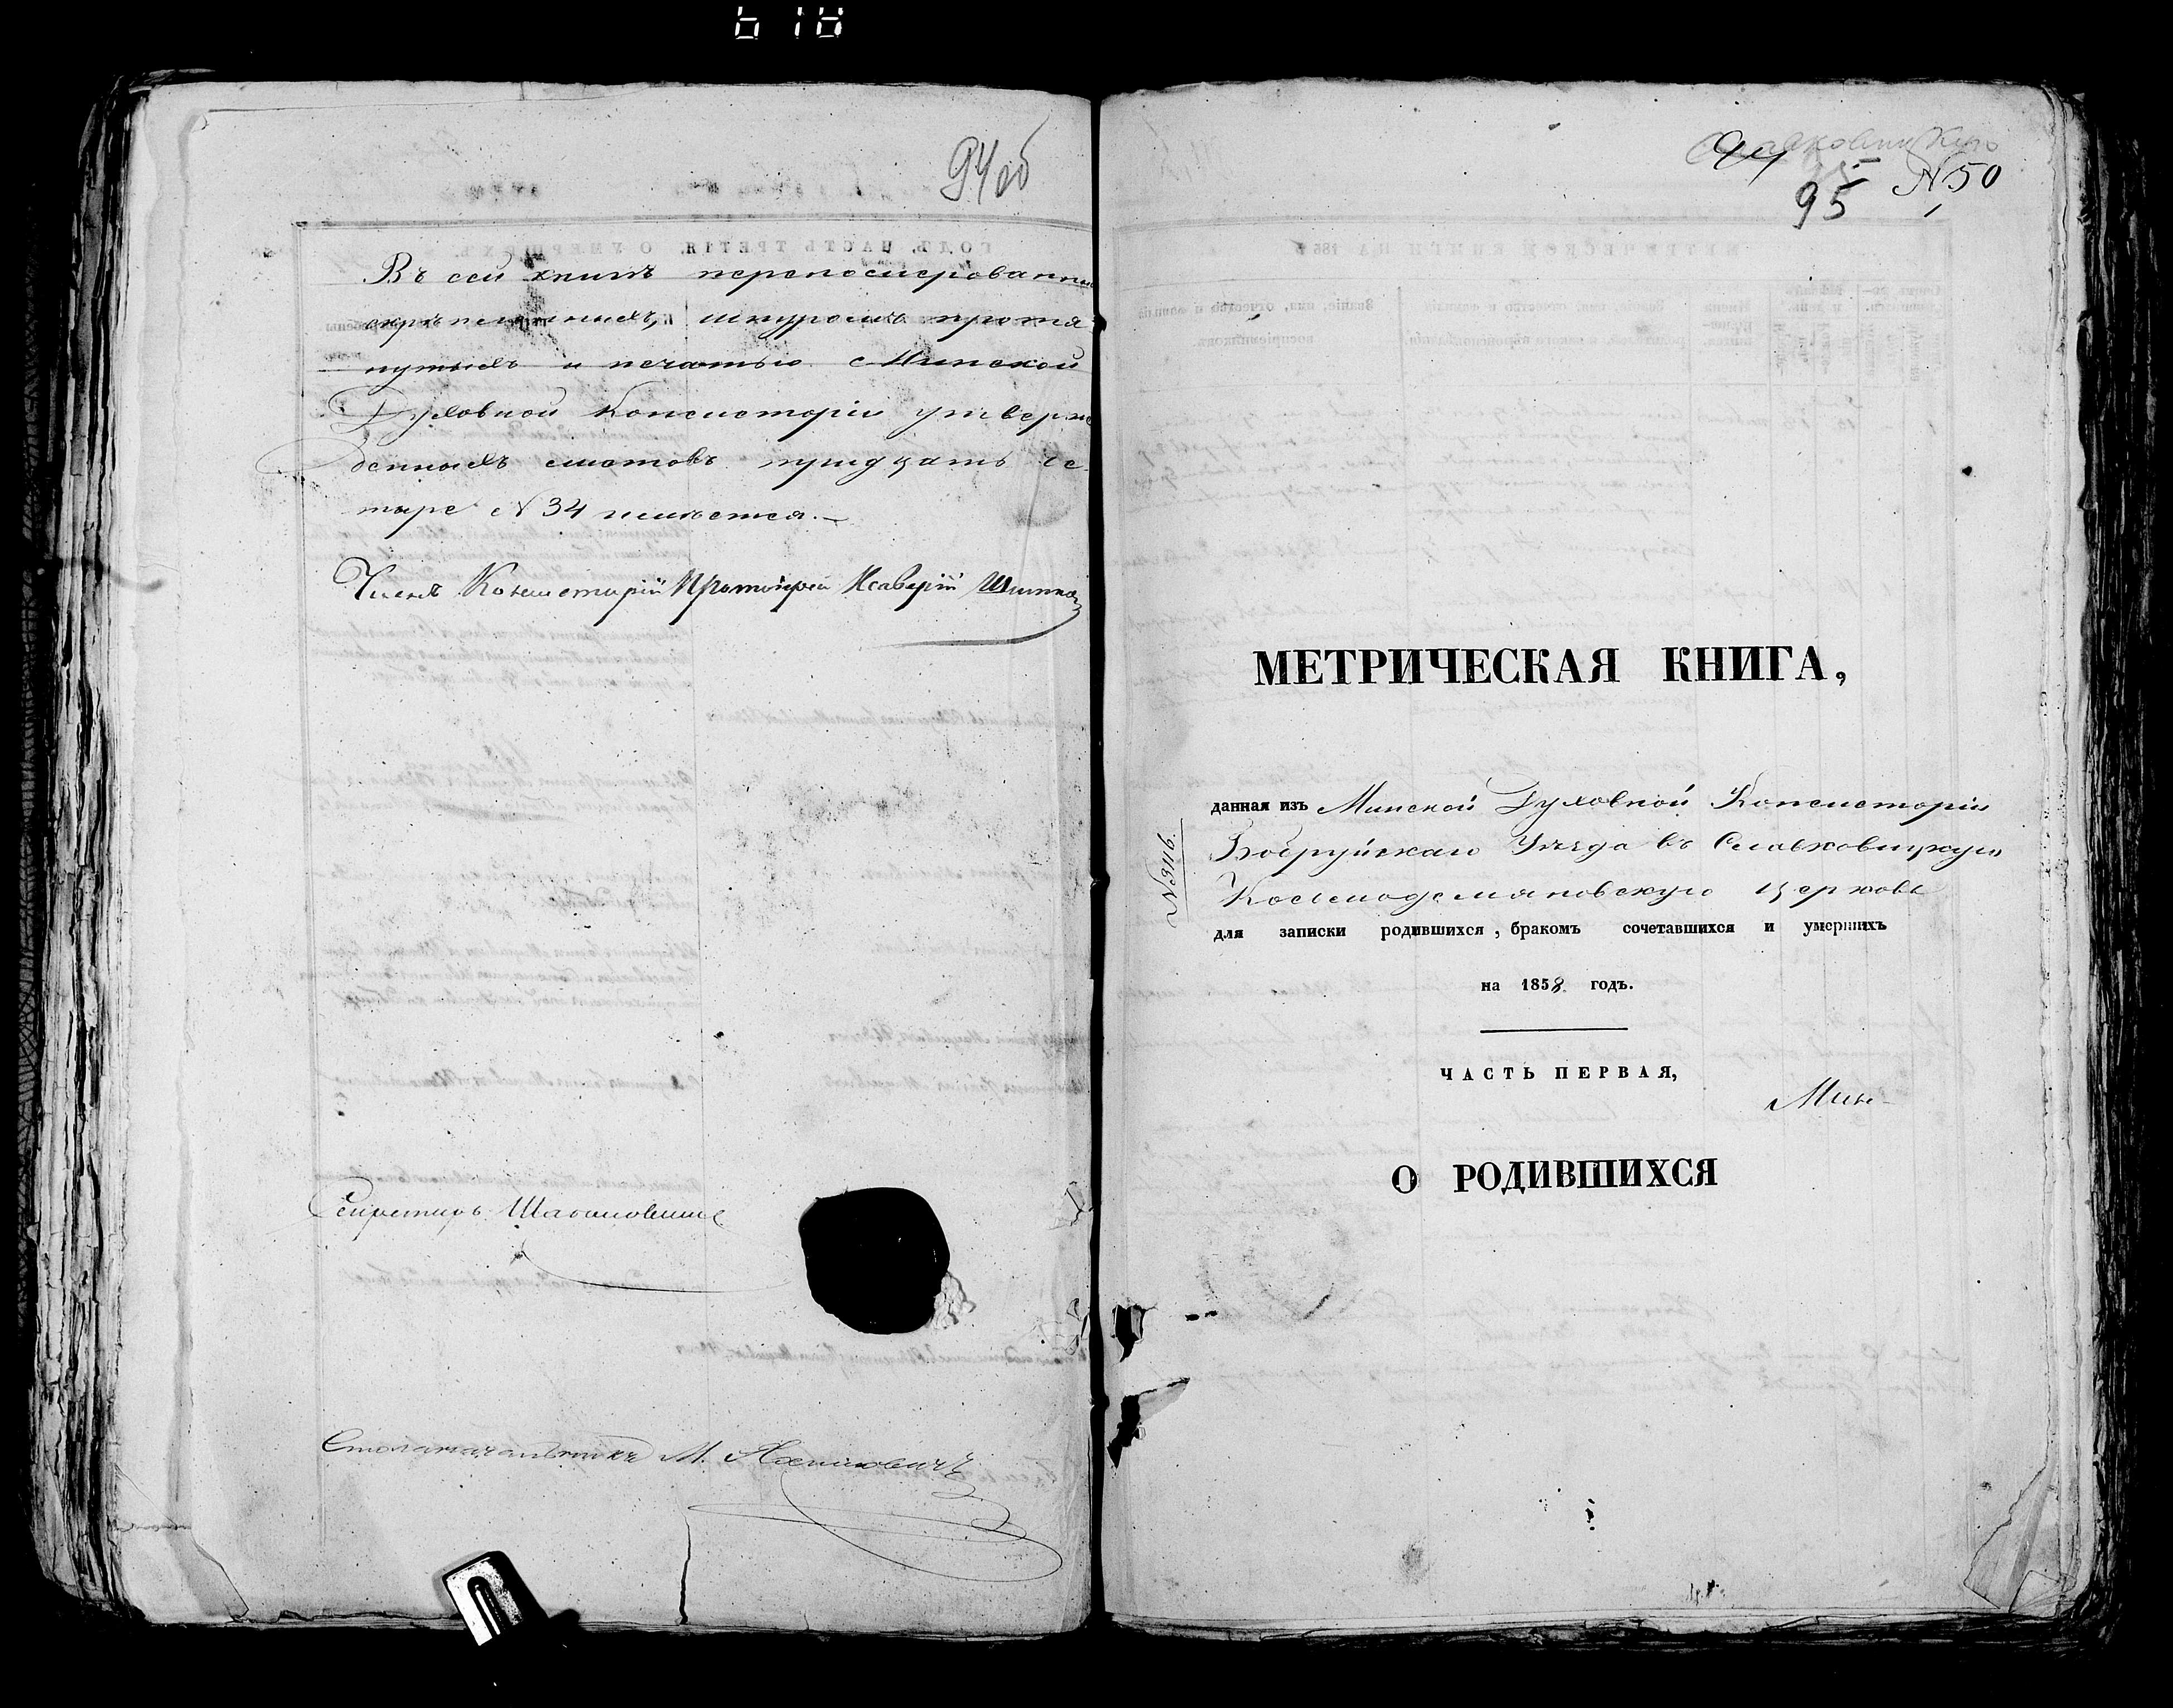 94об
Въ сей книгѣ перенумерованныхъ
скрѣпленныхъ, шнуромъ протя
нутыхъ и печатью Минской
Духовной Консисторіи утверж
денныхъ листовъ тридцать че
тыре N 34 имѣется.—
Членъ Консисторіи Протоіерей Ксаверій
Секретарь
Столоначальникъ М.
95 N 50
МЕТРИЧЕСКАЯ КНИГА,
данная изъ Минской Духовной Консисторіи
Бобруйскаго Уѣзда въ Славковицкую
Космодемяновскую церковь
для записки родившихся, бракомъ сочетавшихся и умершихъ
на 1858 годъ.
ЧАСТЬ ПЕРВАЯ,
Мин-
О РОДИВШИХСЯ
N 3116.